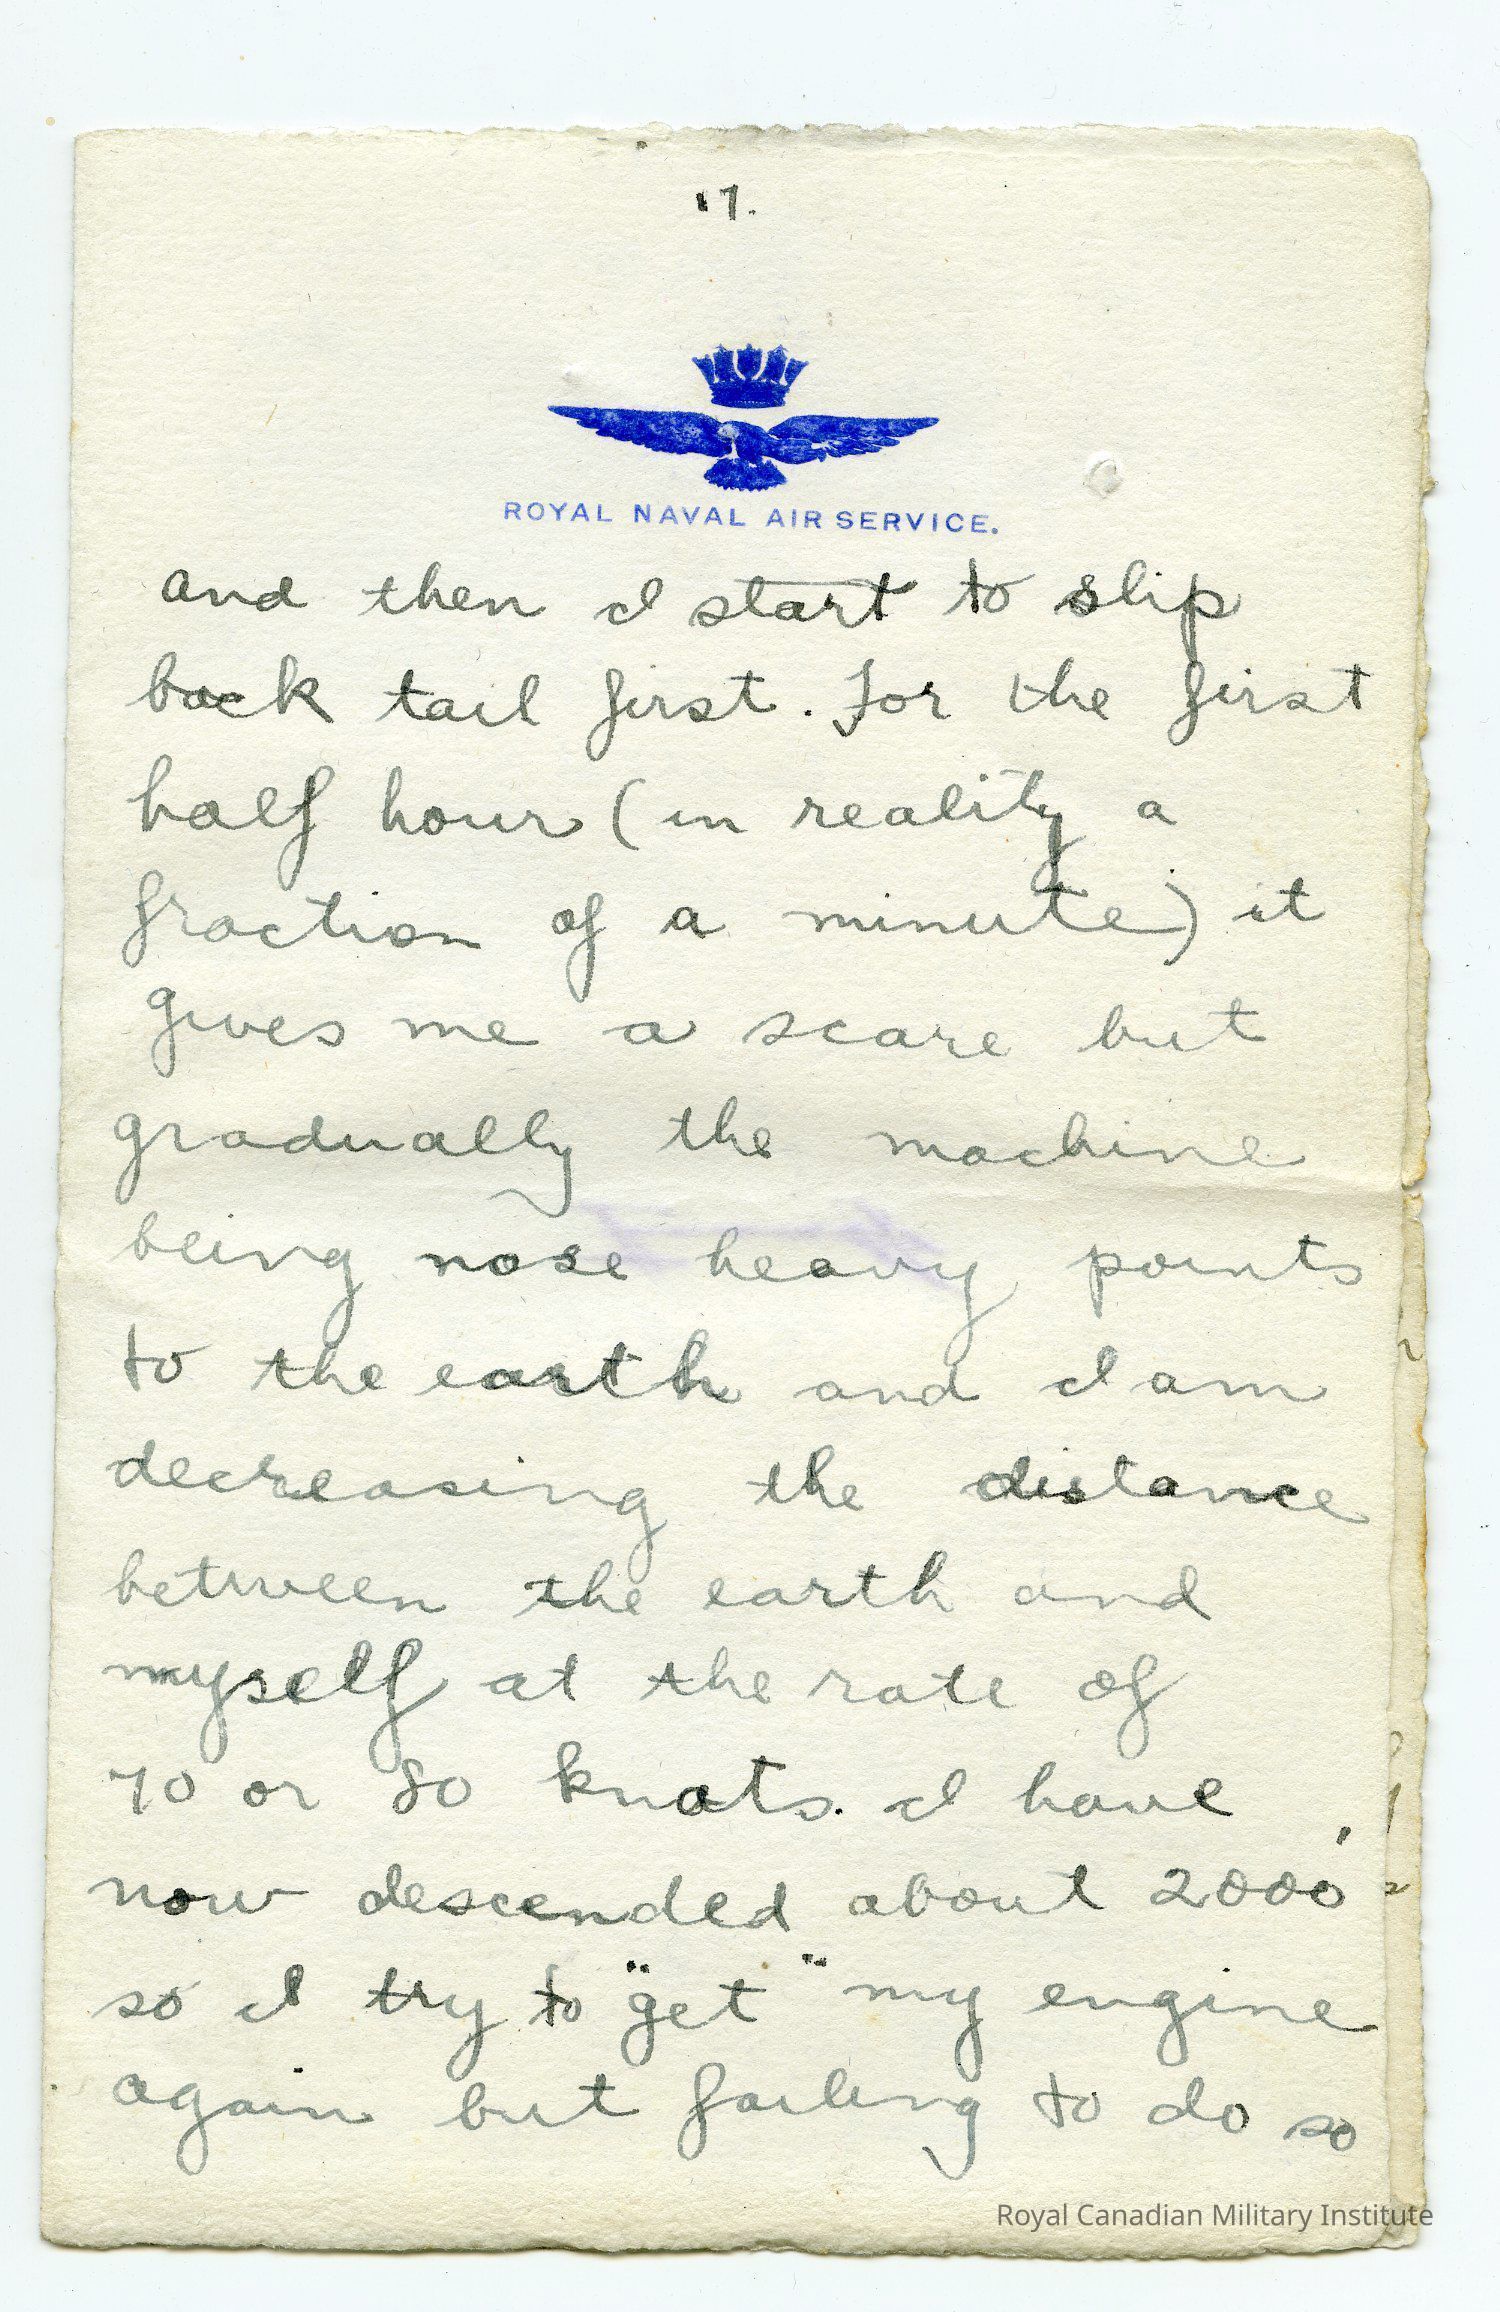 17.
ROYAL NAVAL AIR SERVICE.
and then I start to slip
back tail first. For the first
half hour (in reality a
fraction of a minute) it
gives me a scare but
gradually the machine
being nose heavy points
to the earth and I am
decreasing the distance
between the earth and
myself at the rate of
70 or 80 knots. I have
now descended about 2000'
so I try to "get" my engine
again but failing to do so
Royal Canadian Military Institute